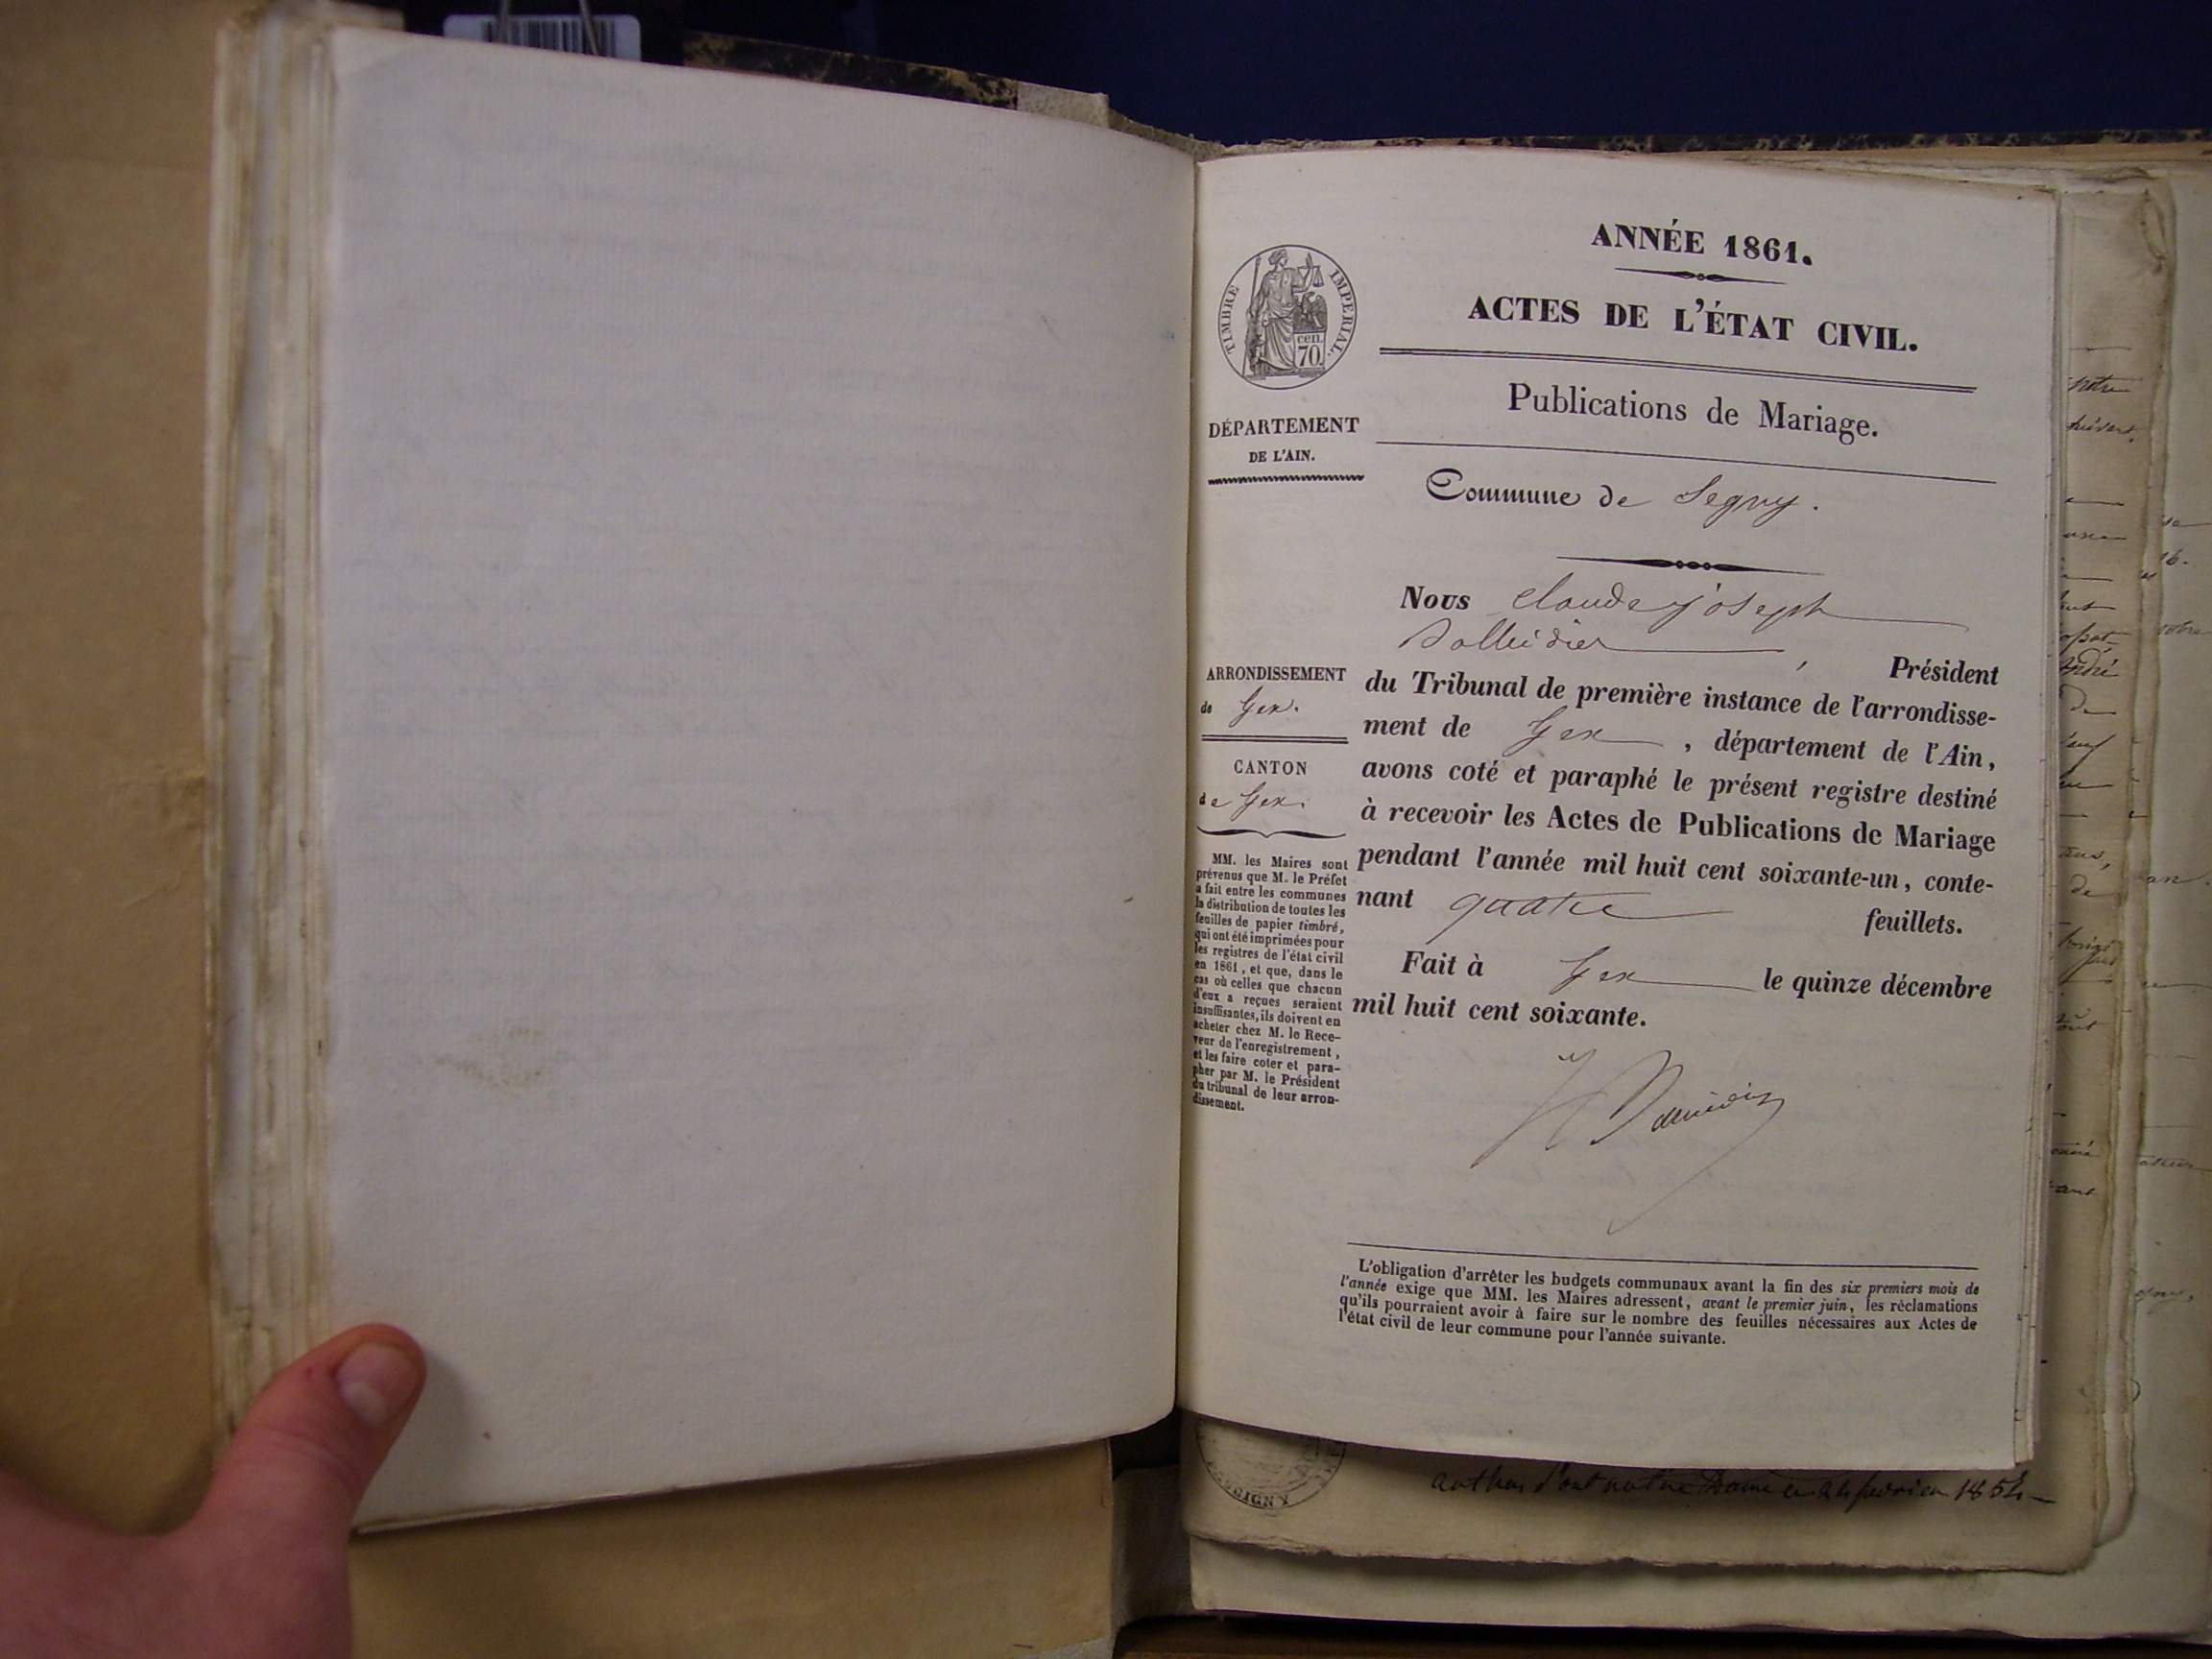 ANNÉE 1861.
ACTES DE L'ÉTAT CIVIL.
TIMBRE IMPÉRIAL.
cen.
70.
Publications de Mariage.
DÉPARTEMENT
DE L'AIN.
Commune de Segny.
Nous Claude joseph
, Président
ARRONDISSEMENT
de Gex.
CANTON
de Gex.
du Tribunal de première instance de l'arrondisse-
ment de Gex , département de l'Ain,
avons coté et paraphé le présent registre destiné
à recevoir les Actes de Publications de Mariage
pendant l'année mil huit cent soixante-un, conte-
nant quatre feuillets.
Fait à Gex le quinze décembre
mil huit cent soixante.
MM. les Maires sont
prévenus que M. le Préfet
a fait entre les communes
la distribution de toutes les
feuilles de papier timbré,
qui ont été imprimées pour
les registres de l'état civil
en 1861, et que, dans le
cas où celles que chacun
d'eux a reçues seraient
insuffisantes, ils doivent en
acheter chez M. le Rece-
veur de l'enregistrement,
et les faire coter et para-
pher par M. le Président
du tribunal de leur arron-
dissement.
L'obligation d'arrêter les budgets communaux avant la fin des six premiers mois de
l'année exige que MM. les Maires adressent, avant le premier juin, les réclamations
qu'ils pourraient avoir à faire sur le nombre des feuilles nécessaires aux Actes de
l'état civil de leur commune pour l'année suivante.